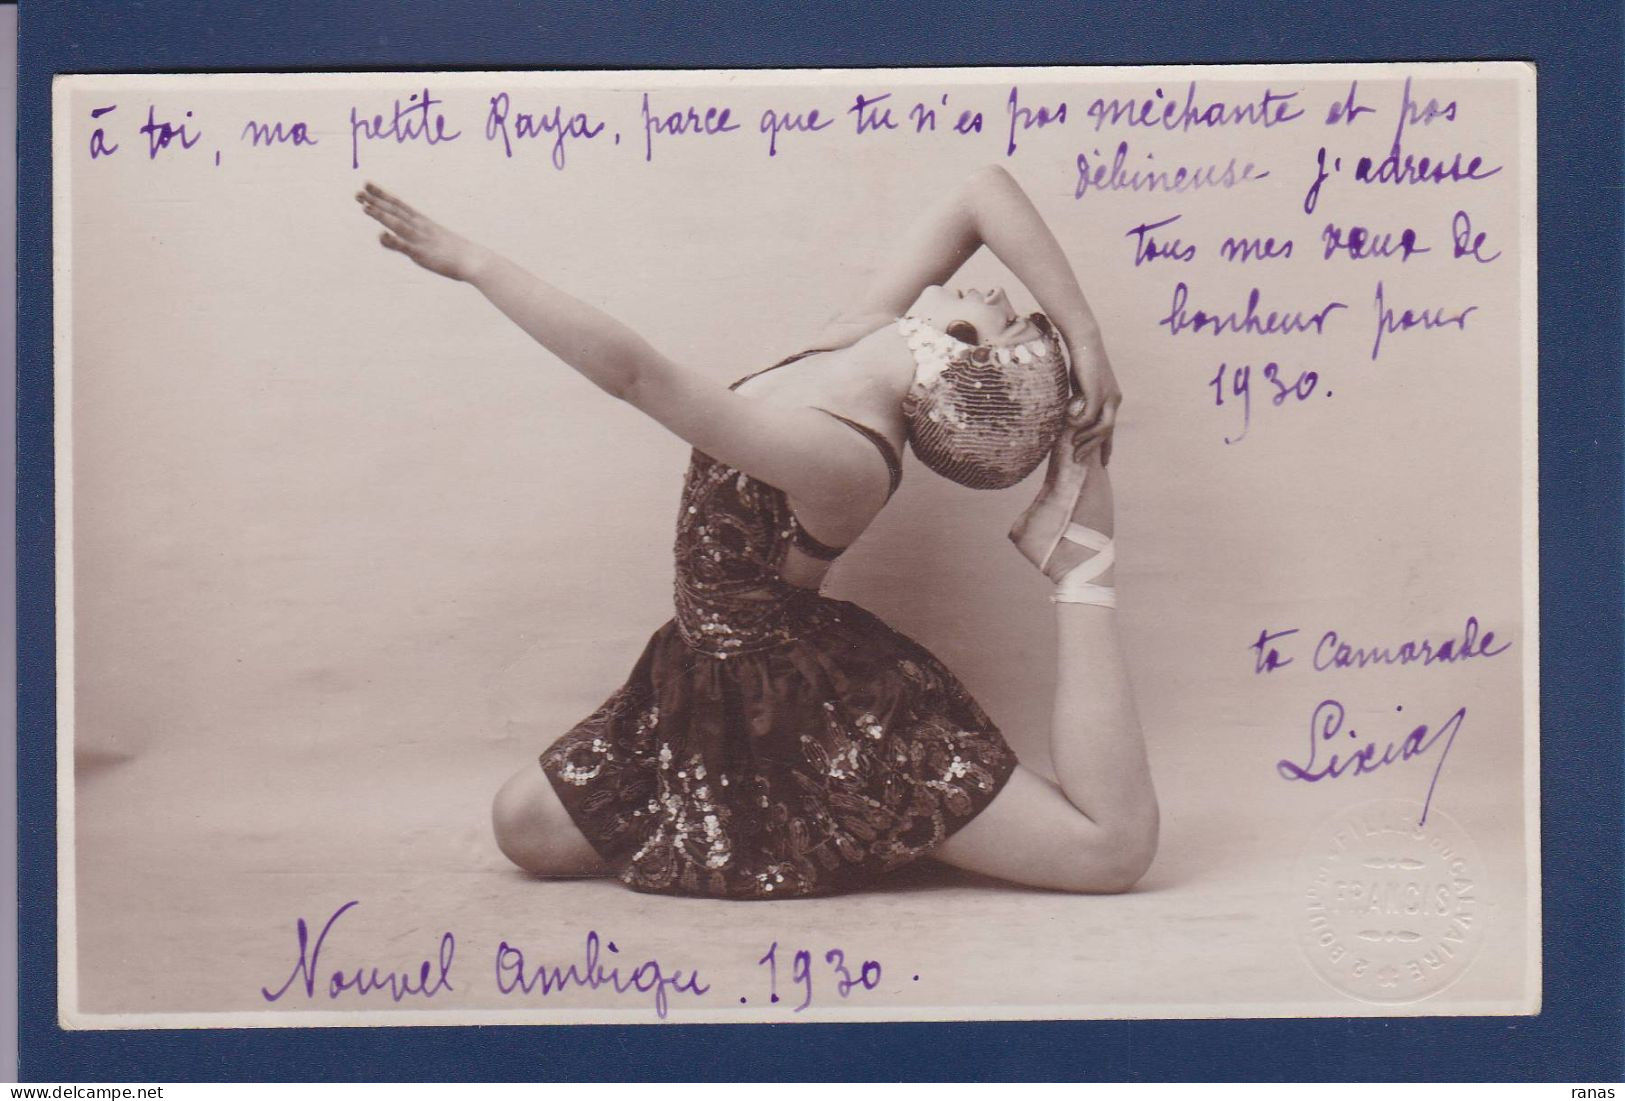 à toi, ma petite Raya, parce que tu n'es pas méchante et pas
débineuse j'adresse
tous mes vœux de
bonheur pour
1930.
ta camarade
Lixia
FRANCIS
2 BOULD FILLES DU CALVAIRE
Nouvel Ambigu. 1930.
ranas